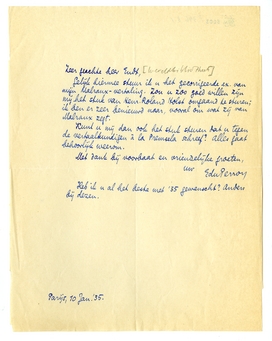 Zeer geachte heer Smit,
Gelijk hiermee stuur ik u het gecorrigeerde ex. van
mijn Malraux-vertaling. Zou u zoo goed willen zijn
mij het stuk van Henr. Roland Holst omgaand te sturen;
ik ben er zeer benieuwd naar, vooral om wat zij van
Malraux zegt.
Kunt u mij dan ook het stuk sturen dat u tegen
de vertaalkundigen à la Premsela schreef? Alles gaat
behoorlijk weerom.
Met dank bij voorbaat en vriendelijke groeten,
uw
EduPerron
Heb ik u al het beste met '35 gewenscht? Anders
bij dezen.
Parijs, 10 Jan. '35.